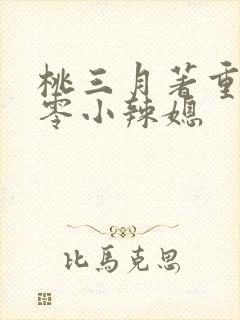 桃三月著重
零小辣媳
比馬克思